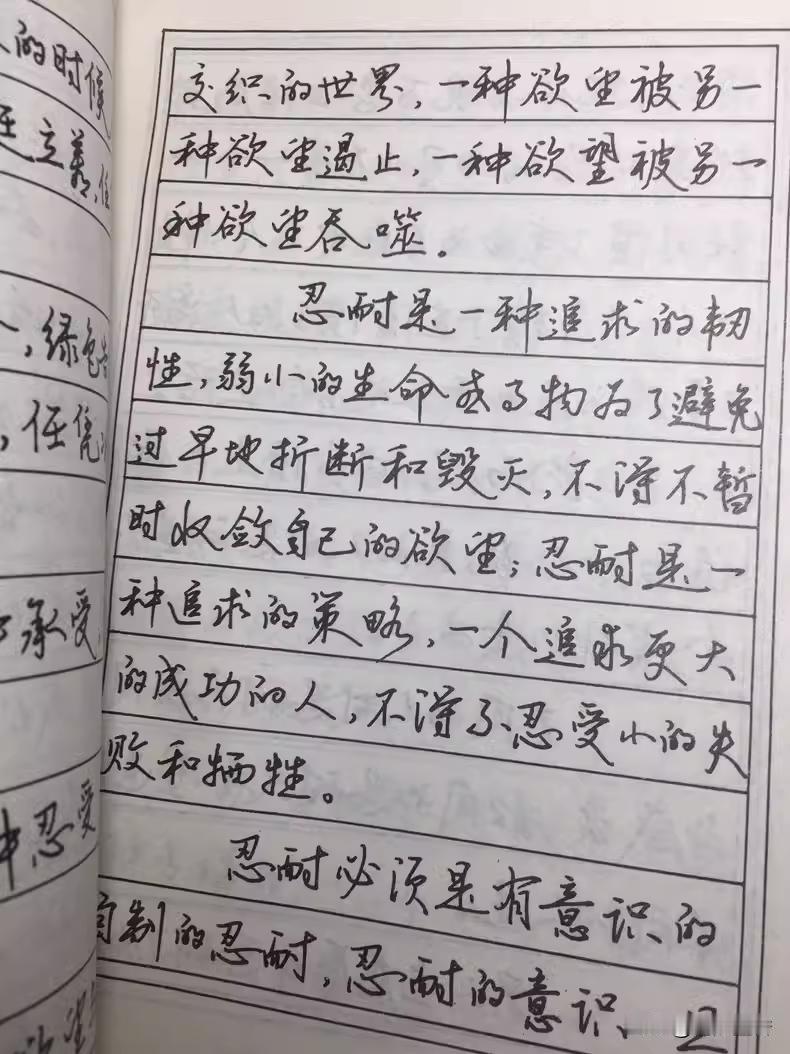 的时候
立義,任
,绿色
,任凭
承受,
忍受
欲望
交织的世界,一种欲望被另一
种欲望遏止,一种欲望被另一
种欲望吞噬。
忍耐是一种追求的韧
性,弱小的生命或事物为了避免
过早地折断和毁灭,不得不暂
时收敛自己的欲望;忍耐是一
种追求的策略,一个追求更大
的成功的人,不得不忍受小的失
败和牺牲。
忍耐必须是有意识的
自制的忍耐,忍耐的意识